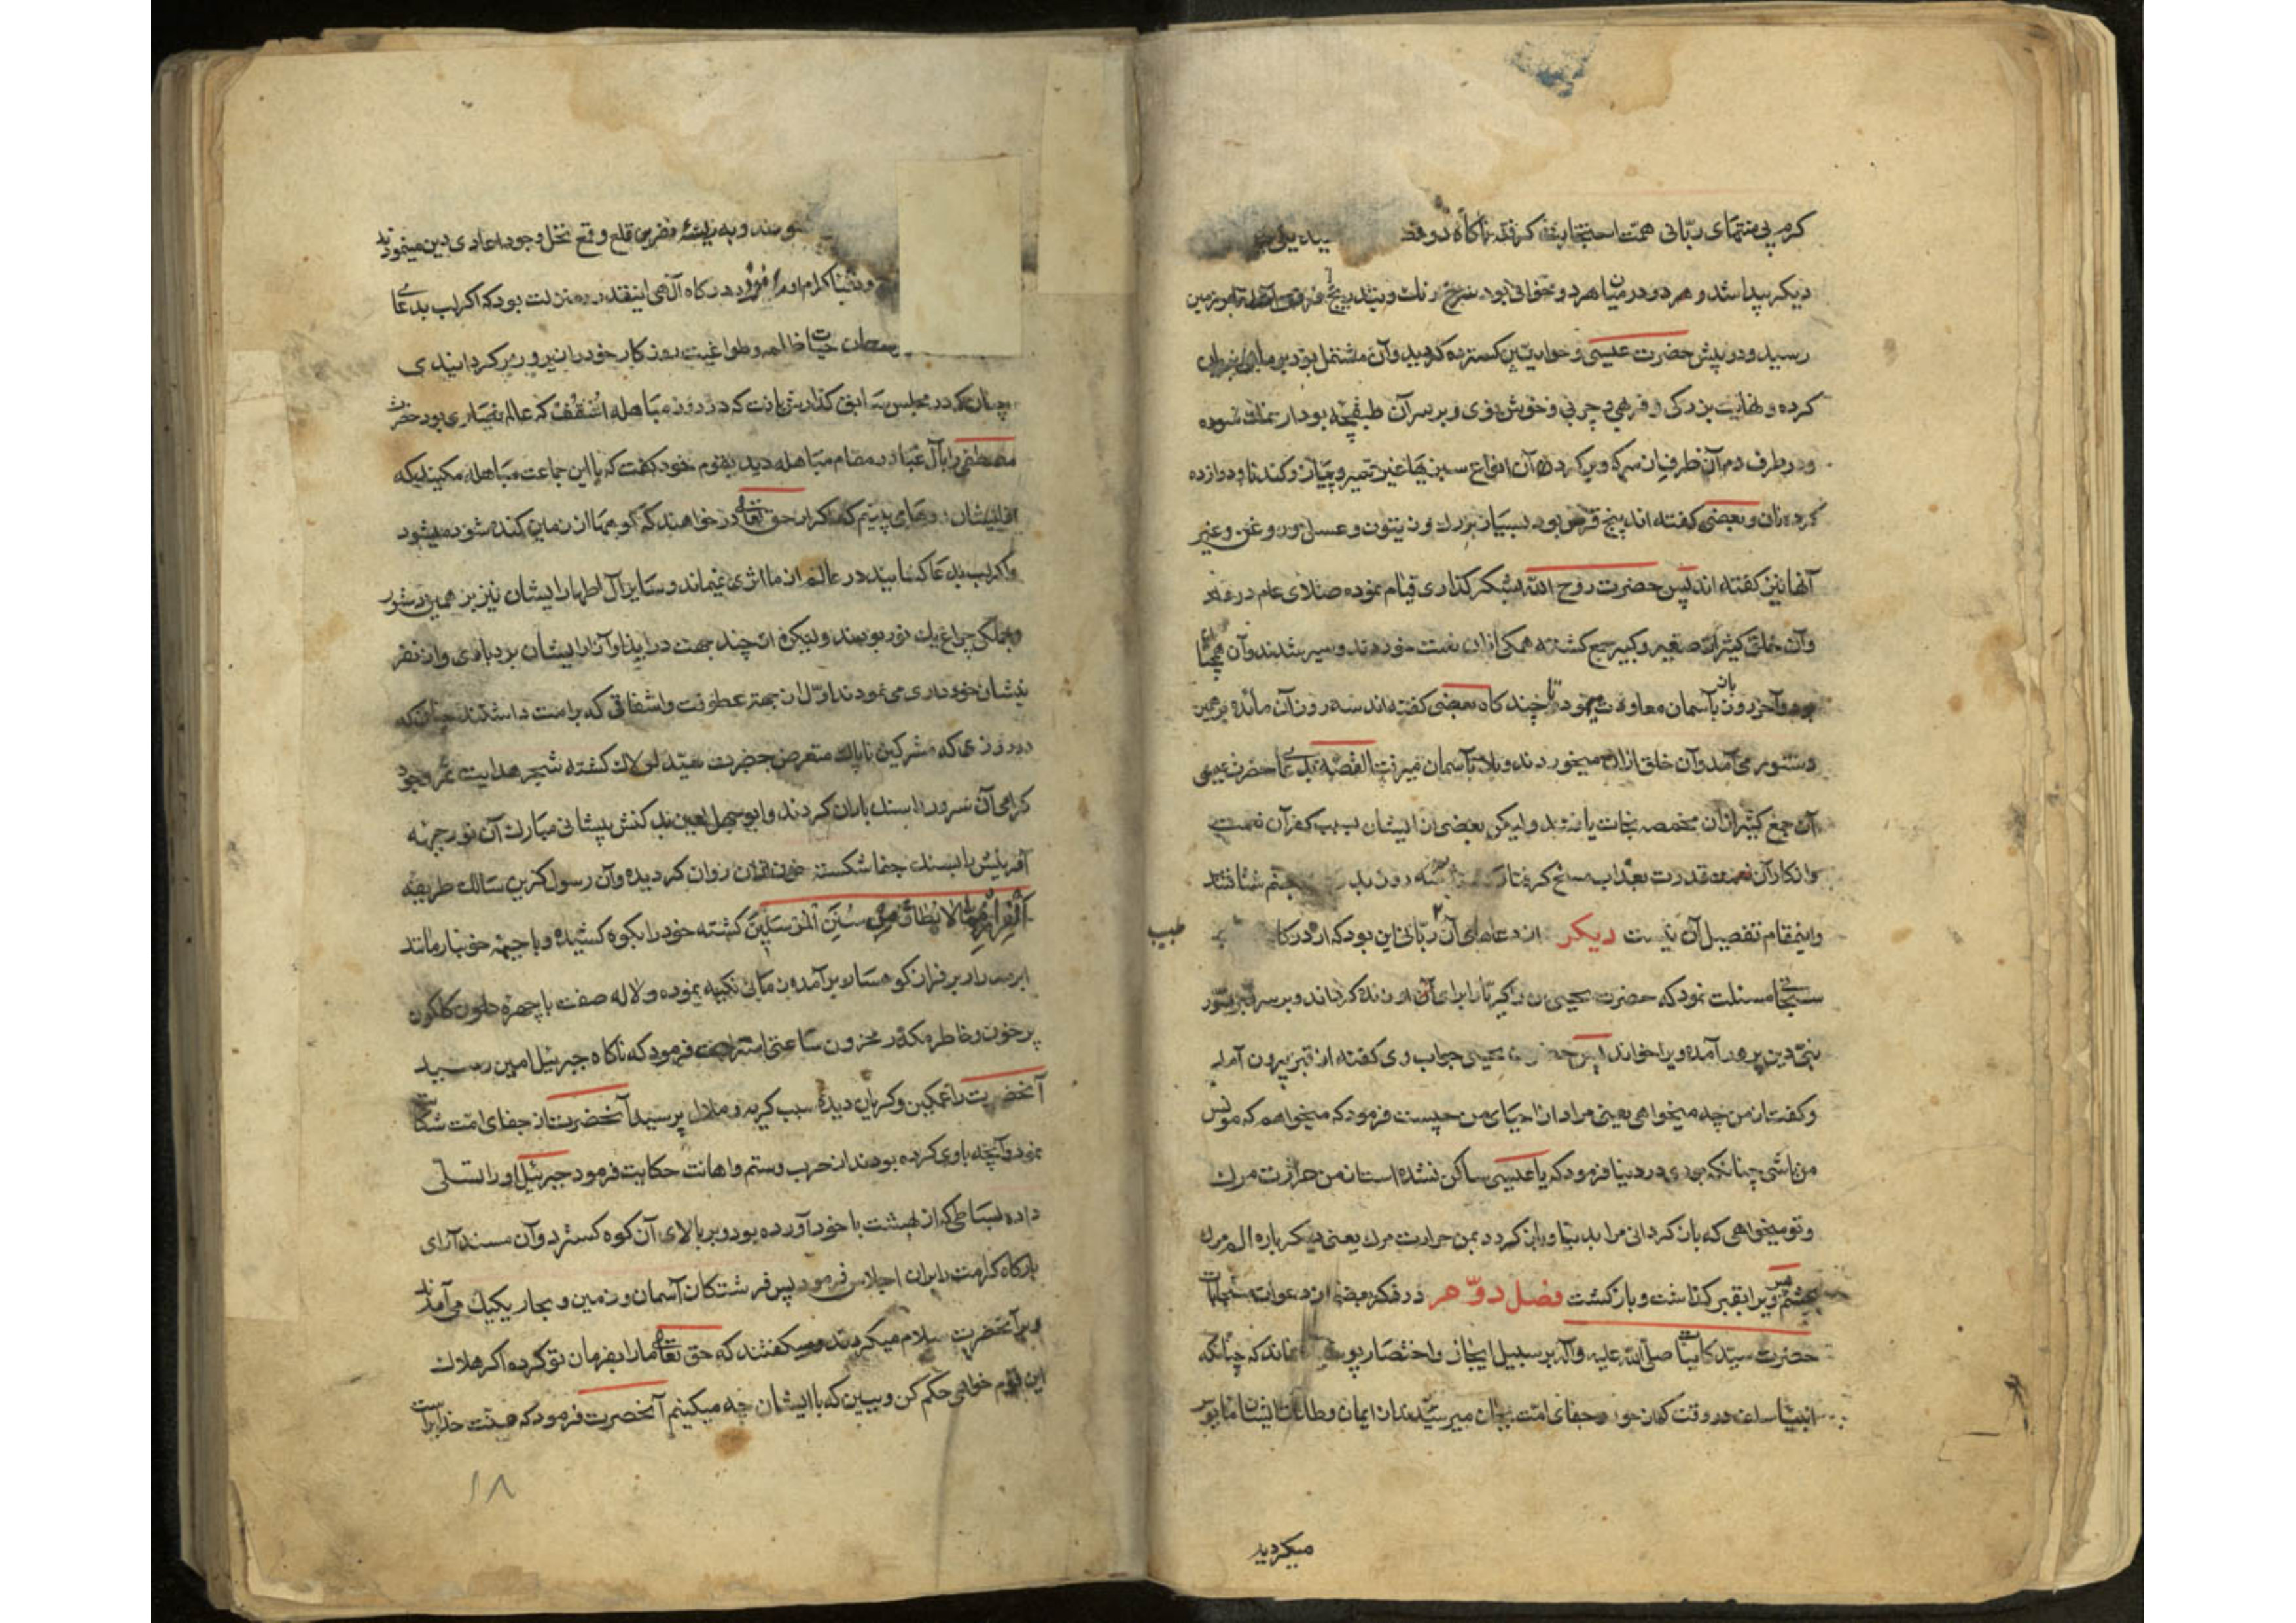 کرم بی منتهای ربانی همت استجابت گرفته ناگاه دو قطعه
دیکر پیدا شد و هر دو در میان هر دو خوانی بود سرخ رنک و بتدریج
رسید و در پیش حضرت عیسی و حواریین کسترده کردید و آن مشتمل بود بر ماهی بریان
کرده و نهایت بزرکی و فربهی و چربی و خوش بوی و بر سر آن طبقچه بود از نمک سوده
و در طرف دم آن ظرفی از سرکه و بر کرد آن انواع سبزیها غیر تره و پیاز و کندنا و دوازده
کرده نان و بعضی کفته اند پنج قرص بود بسیار بزرک و زیتون و عسل و روغن و غیر
آنها نیز کفته اند پس حضرت روح الله بشکر کذاری قیام نموده صلای عام در داد
و آن خلق کثیر از صغیر و کبیر جمع کشته همکی از آن نعمت خوردند و سیر شدند و آن همچنان
بود و آخر روز باز بآسمان معاودت نمود تا چند کاه بعضی کفته اند سه روز آن مائده بر همین
دستور می آمد و آن خلق از آن میخوردند و باز بآسمان میرفت القصه بدعای حضرت عیسی
آن جمع کثیر از آن مخمصه نجات یافتند ولیکن بعضی از ایشان بسبب کفر آن نعمت
و انکار آن قدرت بعذاب مسخ کرفتار سه روز بجهنم شتافتند
و اینمقام تفصیل آن نیست دیکر از دعاهای آن ربانی این بود که از درکاه
طبیب
سبحانی مسئلت نمود که حضرت یحیی بن زکریا را برای او زنده کرداند و بر سر قبر
نبی دین پرور آمده ویرا خواند پس حضرت یحیی جواب وی کفته از قبر بیرون آمد
و کفت از من چه میخواهی یعنی مراد از احیای من چیست فرمود که میخواهم که مونس
من باشی چنانکه بودی در دنیا فرمود که یا عیسی ساکن نشده است از من حرارت مرک
و تو میخواهی که باز کردانی مرا بدنیا و باز کردد بمن حرارت مرک یعنی دیکر باره الم مرک
بچشم پس ویرا بقبر کذاشت و باز کشت فصل دوم در ذکر بعضی از دعوات مستجابات
حضرت سید کاینات صلی الله علیه وآله بر سبیل ایجاز و اختصار پوشیده نماند که چنانکه
انبیا سلف در وقت که از جور و جفای امت بجان میرسیدند از ایمان و طاعات ایشان مایوس
میکردید
و به تیشهٔ نفرین قلع و قمع نخل وجود اعادی دین مینمودند
در درکاه آلهی اینقدر منزلت بود که اکر لب بدعای
حیات ظالمه و طواغیت روزکار خود را زیر و زبر کردانیدی
چنانکه در مجلس سابق کذارش یافت که در روز مباهله اسقف که عالم نصاری بود حضرت
مصطفی را با آل عبا در مقام مباهله دید بقوم خود کفت که با این جماعت مباهله مکنید که
از ایشان روهای می بینیم که اکر از حق تعالی در خواهند که کوهها از زمین کنده شود میشود
و اکر لب بدعا کشایند در عالم از ما اثری نمیماند و سایر آل اطهار ایشان نیز بر همین دستور
و بجملکی چراغ یک نور بودند ولیکن از چند جهت در ایذا و آزار ایشان بردباری و از نفر
ینشان خودداری می نمودند اول از جهتر عطوفت و اشفاقی که بر امت داشتند چنان که
در روزی که مشرکین ناپاک متعرض حضرت سید لولاک کشته شجر هدایت ثمر وجود
کرامی آن سرور را سنک باران کردند و ابوجهل لعین بد کنش پیشانی مبارک آن نور جبهه
آفرینش را بسنک جفا شکسته خون از آن روان کردیده و آن رسول کزین سالک طریقه
الفرار مما لا یطاق من سنن المرسلین کشته خود را بکوه کشیده و با جبهه خونبار مانند
ابر مدرار بر فراز کوهسار بر آمده زمانی تکیه نموده و لاله صفت با چهره کلکون
پر خون و خاطر مکدر محزون ساعتی استراحت فرمود که ناکاه جبرئیل امین رسید
آنحضرت را غمکین و کریان دیده سبب کریه و ملال پرسید آنحضرت از جفای امت شکایت
نمود و آنچه با وی کرده بودند از ضرب و ستم و اهانت حکایت فرمود جبرئیل او را تسلی
داده بساطی که از بهشت با خود آورده بود و بر بالای آن کوه کسترد و آن مسند آرای
بارکاه کرامت را بر آن اجلاس فرمود پس فرشتکان آسمان و زمین و بحار یکیک می آمدند
و بر آنحضرت سلام میکردند و میکفتند که حق تعالی ما را بفرمان تو کرده اکر هلاک
این قوم خواهی حکم کن و ببین که با ایشان چه میکنیم آنحضرت فرمود که منت خدایراست
۱۸